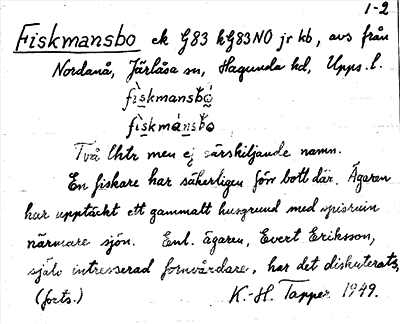 1-2
Fiskmansbo ek G83 hG83NO jr kb, avs från
Nordanå, Järlåsa sn, Hagunda hd, Upps. l.
fìskmansbó
fìskmánsbo
Två lhtr men ej särskiljande namn.
En fiskare har säkerligen förr bott där. Ägaren
har upptäckt ett gammalt husgrund med spisruin
närmare sjön. Enl. ägaren, Evert Eriksson,
själv intresserad fornvårdare, har det diskuterats,
(forts.) K.-H. Tapper 1949.